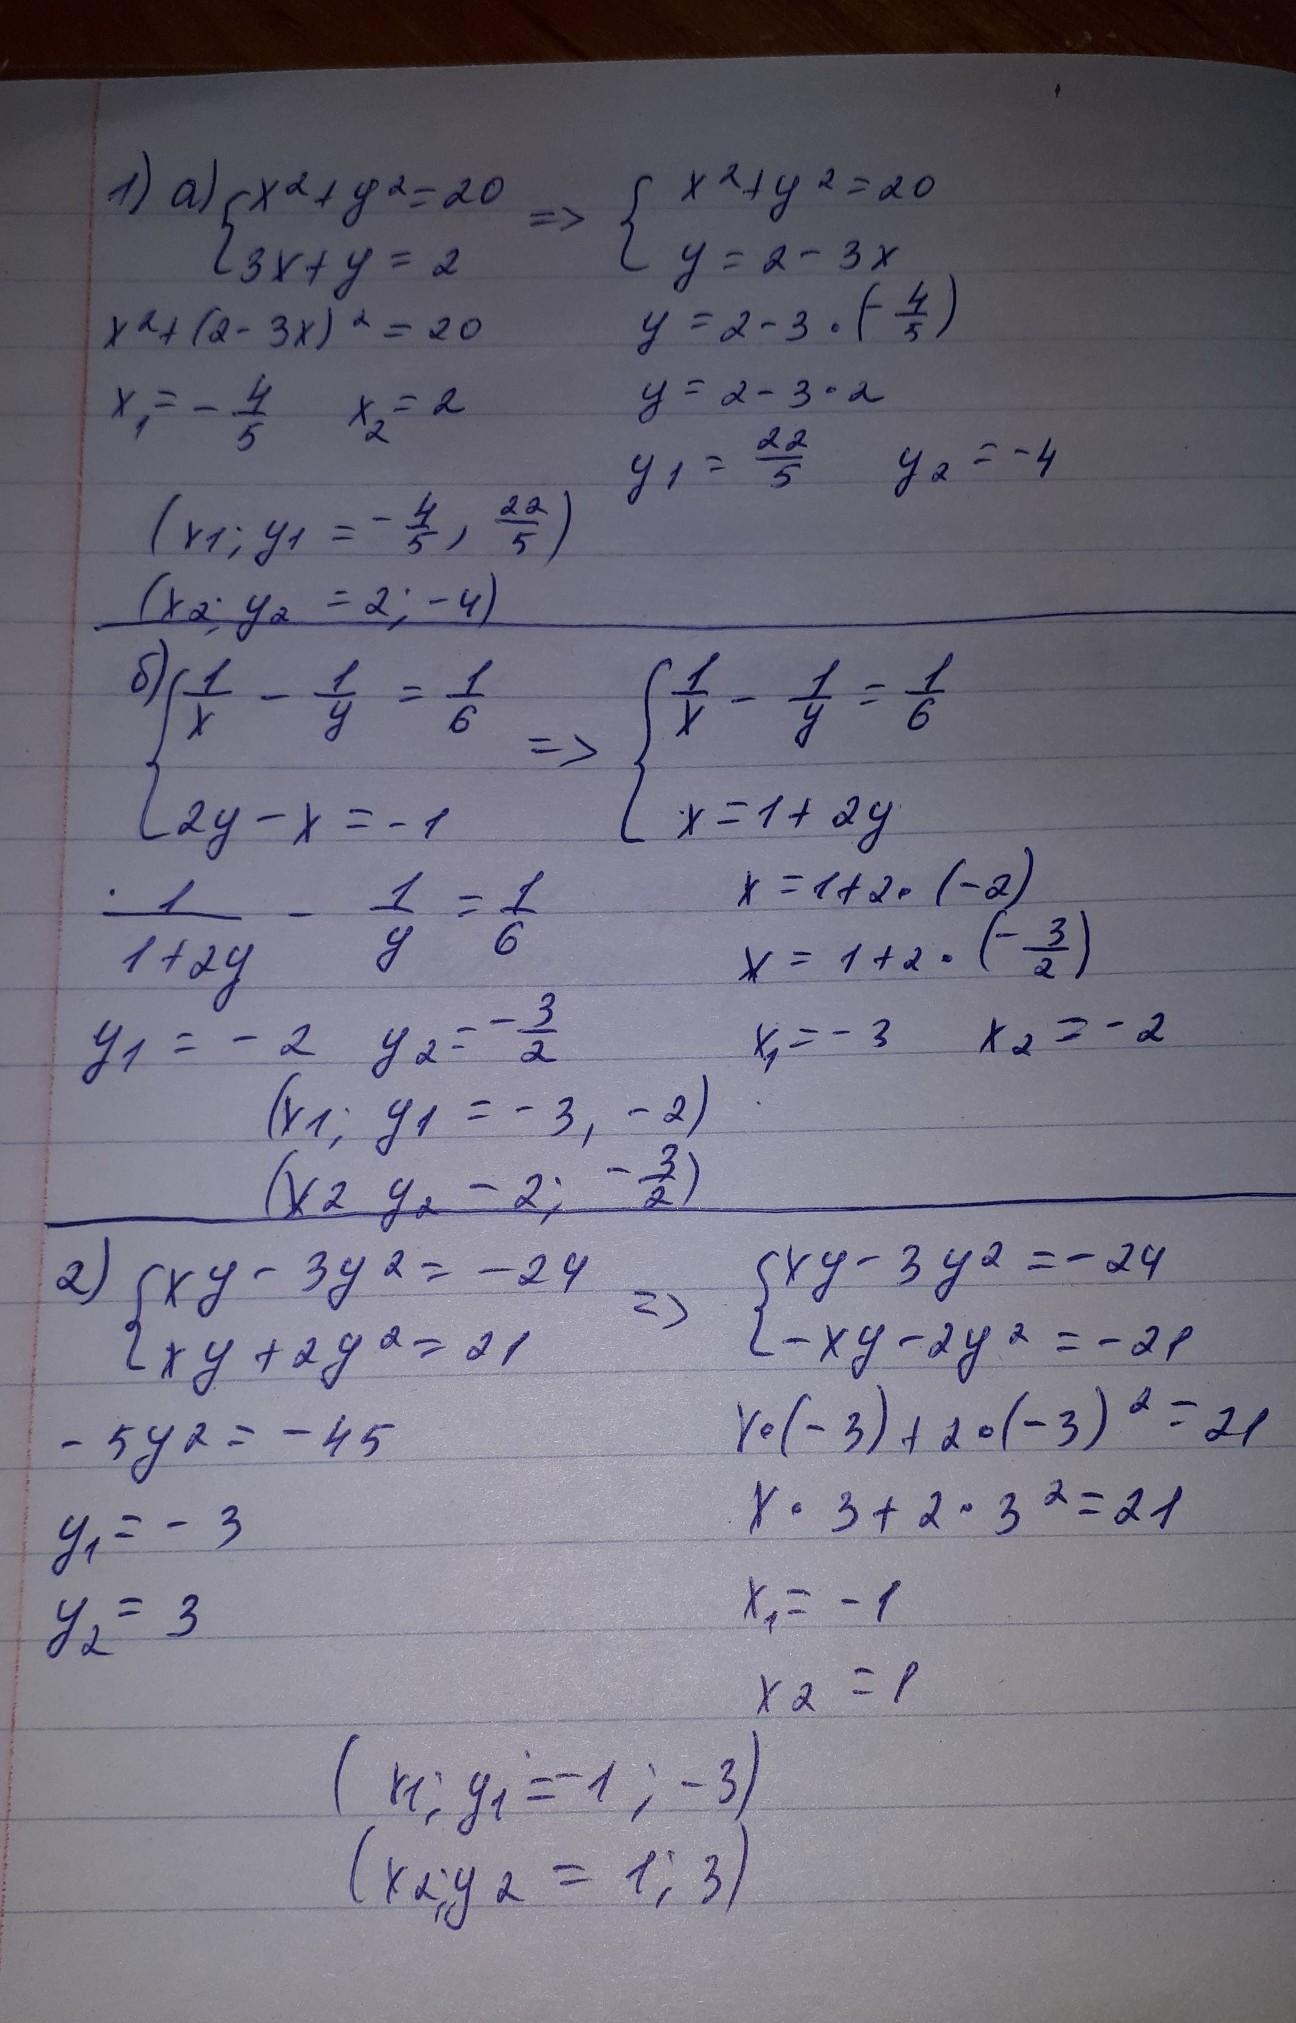 1) а) { x² + y² = 20 => { x² + y² = 20
3x + y = 2 y = 2 - 3x
x² + (2 - 3x)² = 20 y = 2 - 3 · (-4/5)
x₁ = -4/5 x₂ = 2 y = 2 - 3 · 2
y₁ = 22/5 y₂ = -4
(x1; y1 = -4/5, 22/5)
(x2; y2 = 2; -4)
б) { 1/x - 1/y = 1/6 => { 1/x - 1/y = 1/6
2y - x = -1 x = 1 + 2y
1/(1+2y) - 1/y = 1/6 x = 1 + 2 · (-2)
x = 1 + 2 · (-3/2)
y₁ = -2 y₂ = -3/2 x₁ = -3 x₂ = -2
(x1; y1 = -3, -2)
(x2 y2 - 2; -3/2)
2) { xy - 3y² = -24 => { xy - 3y² = -24
xy + 2y² = 21 -xy - 2y² = -21
-5y² = -45 x · (-3) + 2 · (-3)² = 21
y₁ = -3 x · 3 + 2 · 3² = 21
y₂ = 3 x₁ = -1
x2 = 1
(x1; y1 = -1; -3)
(x2; y2 = 1; 3)